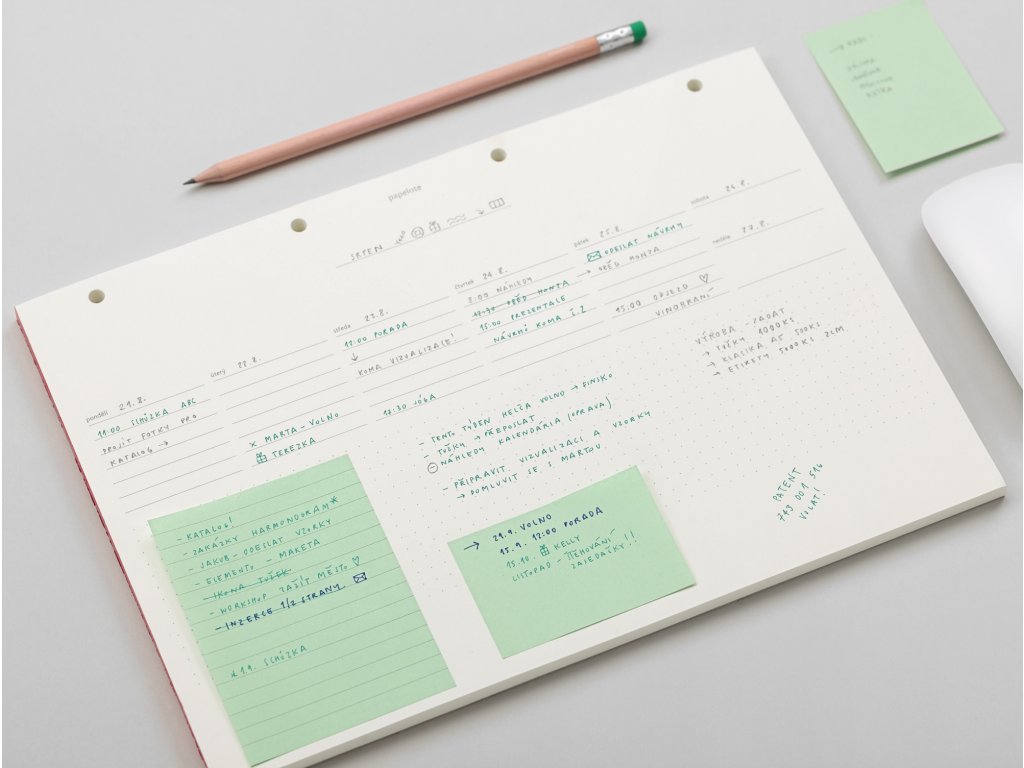 papelote
SRPEN
pondělí 21.8.
11:00 SCHŮZKA ABC
PROJÍT FOTKY PRO
KATALOG →
úterý 22.8.
× MARTA - VOLNO
TEREZKA
středa 23.8.
12:00 PORADA
↓
KOMA VIZUALIZACE!
17:30 JÓGA
čtvrtek 24.8.
8:00 NÁHLEDY
12:30 OBĚD HONZA
15:00 PREZENTACE
NÁVRHŮ KOMA Č.2
pátek 25.8.
ODESLAT NÁVRHY
→ OBĚD HONZA
15:00 ODJEZD ♡
VINOBRANÍ
sobota 26.8.
neděle 27.8.
- TENTO TÝDEN HELČA VOLNO → FINSKO
- TUŽKY → PŘEPOSLAT
NÁHLEDY KALENDÁŘIA (OPRAVA)
- PŘIPRAVIT VIZUALIZACI A VZORKY
→ DOMLUVIT SE S MARTOU
VÝROBA - ZADAT
→ TUŽKY 1000KS
→ KLASIKA A5 500KS
→ ETIKETY 5000KS 2CM
PATENT
VOLAT!
- KATALOG!
- ZAKÁZKY HARMONOGRAM*
- JAKUB - ODESLAT VZORKY
- ELEMENTO - MAKETA
- IKONA TUŽEK
- WORKSHOP ZAŠÍT MĚSTO ♡
- INZERCE 1/2 STRANY
1.9. SCHŮZKA
→ 21.9. VOLNO
15.9. 12:00 PORADA
15.10. KELLY
LISTOPAD - STĚHOVÁNÍ
ZASEDAČKY!!